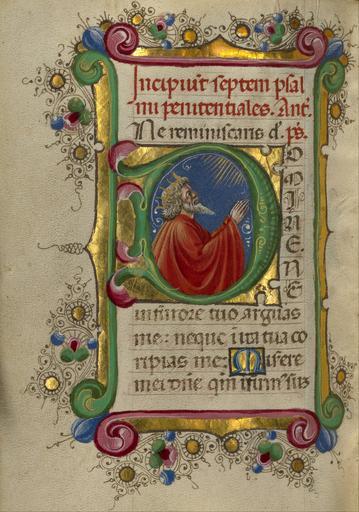 Incipiūt septem psal
mi penitentiales. Ant.
Ne reminiscaris d. ps.
DOMINE. NE
in furore tuo arguas
me: neque in ira tua co
ripias me: Misere
mei dn̄e qm̄ infirmus sus